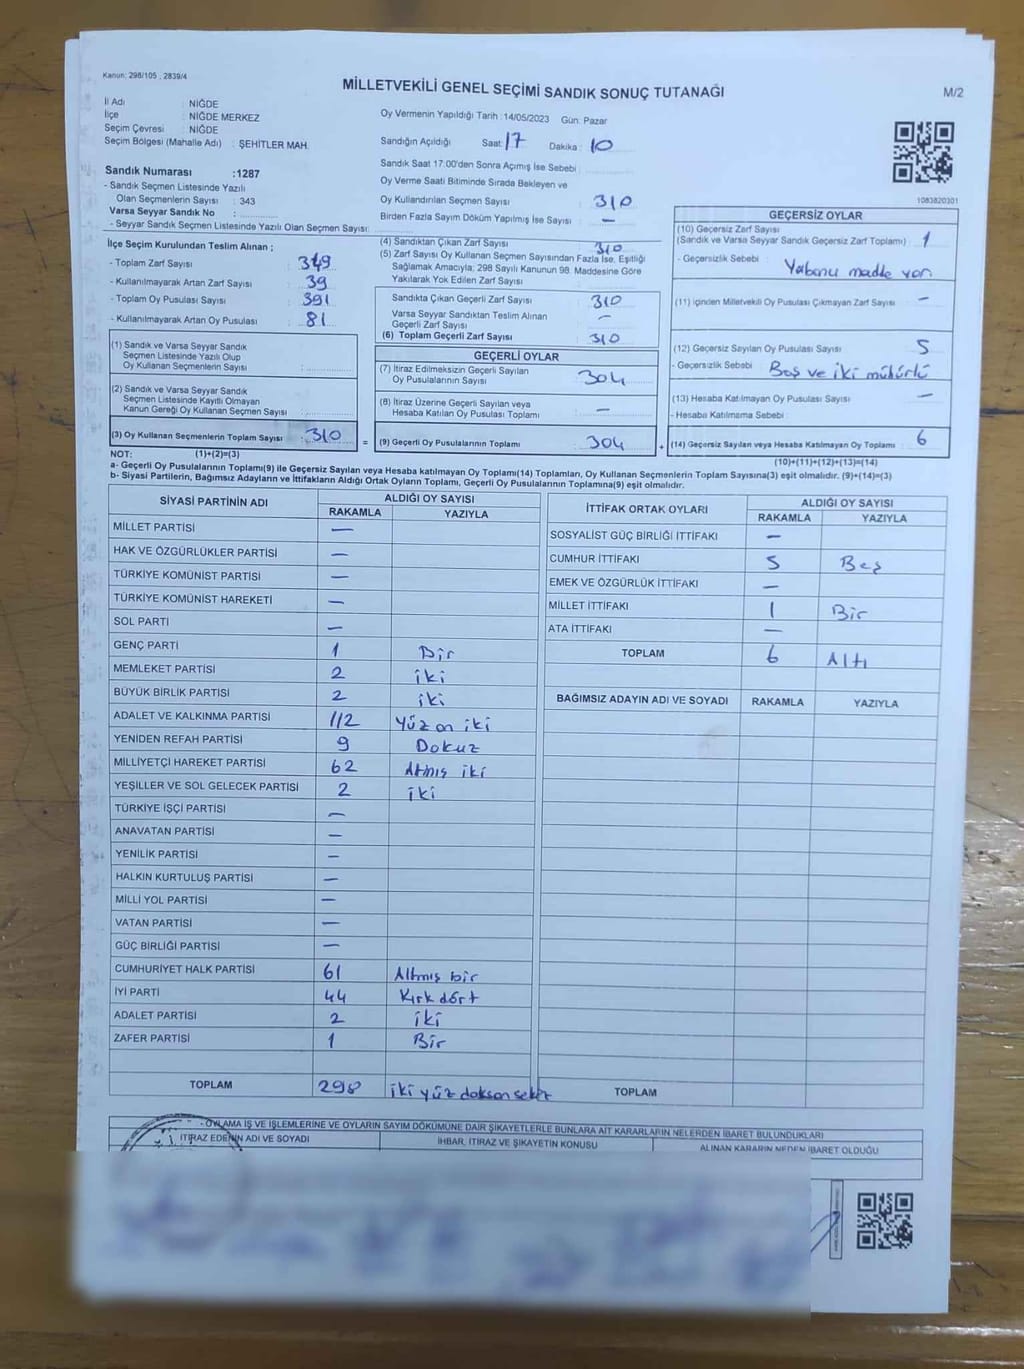 Kanun: 298/105 , 2839/4
MİLLETVEKİLİ GENEL SEÇİMİ SANDIK SONUÇ TUTANAĞI
M/2
İl Adı : NİĞDE
İlçe : NİĞDE MERKEZ
Seçim Çevresi : NİĞDE
Seçim Bölgesi (Mahalle Adı) : ŞEHİTLER MAH.
Sandık Numarası :1287
- Sandık Seçmen Listesinde Yazılı
Olan Seçmenlerin Sayısı : 343
Varsa Seyyar Sandık No :
- Seyyar Sandık Seçmen Listesinde Yazılı Olan Seçmen Sayısı:
Oy Vermenin Yapıldığı Tarih : 14/05/2023 Gün: Pazar
Sandığın Açıldığı Saat: 17 Dakika: 10
Sandık Saat 17:00'den Sonra Açımış İse Sebebi :
Oy Verme Saati Bitiminde Sırada Bekleyen ve
Oy Kullandırılan Seçmen Sayısı : 310
Birden Fazla Sayım Döküm Yapılmış İse Sayısı : —
1083820301
İlçe Seçim Kurulundan Teslim Alınan ;
- Toplam Zarf Sayısı : 349
- Kullanılmayarak Artan Zarf Sayısı : 39
- Toplam Oy Pusulası Sayısı : 391
- Kullanılmayarak Artan Oy Pusulası : 81
(1) Sandık ve Varsa Seyyar Sandık
Seçmen Listesinde Yazılı Olup
Oy Kullanan Seçmenlerin Sayısı :
(2) Sandık ve Varsa Seyyar Sandık
Seçmen Listesinde Kayıtlı Olmayan
Kanun Gereği Oy Kullanan Seçmen Sayısı :
(3) Oy Kullanan Seçmenlerin Toplam Sayısı : 310
(4) Sandıktan Çıkan Zarf Sayısı : 310
(5) Zarf Sayısı Oy Kullanan Seçmen Sayısından Fazla İse, Eşitliği
Sağlamak Amacıyla; 298 Sayılı Kanunun 98. Maddesine Göre
Yakılarak Yok Edilen Zarf Sayısı :
Sandıkta Çıkan Geçerli Zarf Sayısı : 310
Varsa Seyyar Sandıktan Teslim Alınan
Geçerli Zarf Sayısı : —
(6) Toplam Geçerli Zarf Sayısı : 310
GEÇERLİ OYLAR
(7) İtiraz Edilmeksizin Geçerli Sayılan
Oy Pusulalarının Sayısı : 304
(8) İtiraz Üzerine Geçerli Sayılan veya
Hesaba Katılan Oy Pusulası Toplamı : —
= (9) Geçerli Oy Pusulalarının Toplamı : 304
GEÇERSİZ OYLAR
(10) Geçersiz Zarf Sayısı
(Sandık ve Varsa Seyyar Sandık Geçersiz Zarf Toplamı) : 1
- Geçersizlik Sebebi : Yabancı madde var
(11) İçinden Milletvekili Oy Pusulası Çıkmayan Zarf Sayısı : —
(12) Geçersiz Sayılan Oy Pusulası Sayısı : 5
- Geçersizlik Sebebi : Boş ve iki mühürlü
(13) Hesaba Katılmayan Oy Pusulası Sayısı : —
- Hesaba Katılmama Sebebi :
+ (14) Geçersiz Sayılan veya Hesaba Katılmayan Oy Toplamı : 6
NOT: (1)+(2)=(3)
(10)+(11)+(12)+(13)=(14)
a- Geçerli Oy Pusulalarının Toplamı(9) ile Geçersiz Sayılan veya Hesaba katılmayan Oy Toplamı(14) Toplamları, Oy Kullanan Seçmenlerin Toplam Sayısına(3) eşit olmalıdır. (9)+(14)=(3)
b- Siyasi Partilerin, Bağımsız Adayların ve İttifakların Aldığı Ortak Oyların Toplamı, Geçerli Oy Pusulalarının Toplamına(9) eşit olmalıdır.
SİYASİ PARTİNİN ADI
ALDIĞI OY SAYISI
RAKAMLA YAZIYLA
MİLLET PARTİSİ —
HAK VE ÖZGÜRLÜKLER PARTİSİ —
TÜRKİYE KOMÜNİST PARTİSİ —
TÜRKİYE KOMÜNİST HAREKETİ —
SOL PARTİ —
GENÇ PARTİ 1 Bir
MEMLEKET PARTİSİ 2 iki
BÜYÜK BİRLİK PARTİSİ 2 iki
ADALET VE KALKINMA PARTİSİ 112 Yüz on iki
YENİDEN REFAH PARTİSİ 9 Dokuz
MİLLİYETÇİ HAREKET PARTİSİ 62 Atmış iki
YEŞİLLER VE SOL GELECEK PARTİSİ 2 iki
TÜRKİYE İŞÇİ PARTİSİ —
ANAVATAN PARTİSİ —
YENİLİK PARTİSİ —
HALKIN KURTULUŞ PARTİSİ —
MİLLİ YOL PARTİSİ —
VATAN PARTİSİ —
GÜÇ BİRLİĞİ PARTİSİ —
CUMHURİYET HALK PARTİSİ 61 Altmış bir
İYİ PARTİ 44 Kırk dört
ADALET PARTİSİ 2 iki
ZAFER PARTİSİ 1 Bir
TOPLAM 298 iki yüz doksan sekiz
İTTİFAK ORTAK OYLARI
ALDIĞI OY SAYISI
RAKAMLA YAZIYLA
SOSYALİST GÜÇ BİRLİĞİ İTTİFAKI —
CUMHUR İTTİFAKI 5 Beş
EMEK VE ÖZGÜRLÜK İTTİFAKI —
MİLLET İTTİFAKI 1 Bir
ATA İTTİFAKI —
TOPLAM 6 Altı
BAĞIMSIZ ADAYIN ADI VE SOYADI RAKAMLA YAZIYLA
TOPLAM
- OYLAMA İŞ VE İŞLEMLERİNE VE OYLARIN SAYIM DÖKÜMÜNE DAİR ŞİKAYETLERLE BUNLARA AİT KARARLARIN NELERDEN İBARET BULUNDUKLARI
İTİRAZ EDENİN ADI VE SOYADI
İHBAR, İTİRAZ VE ŞİKAYETİN KONUSU
ALINAN KARARIN NEDEN İBARET OLDUĞU